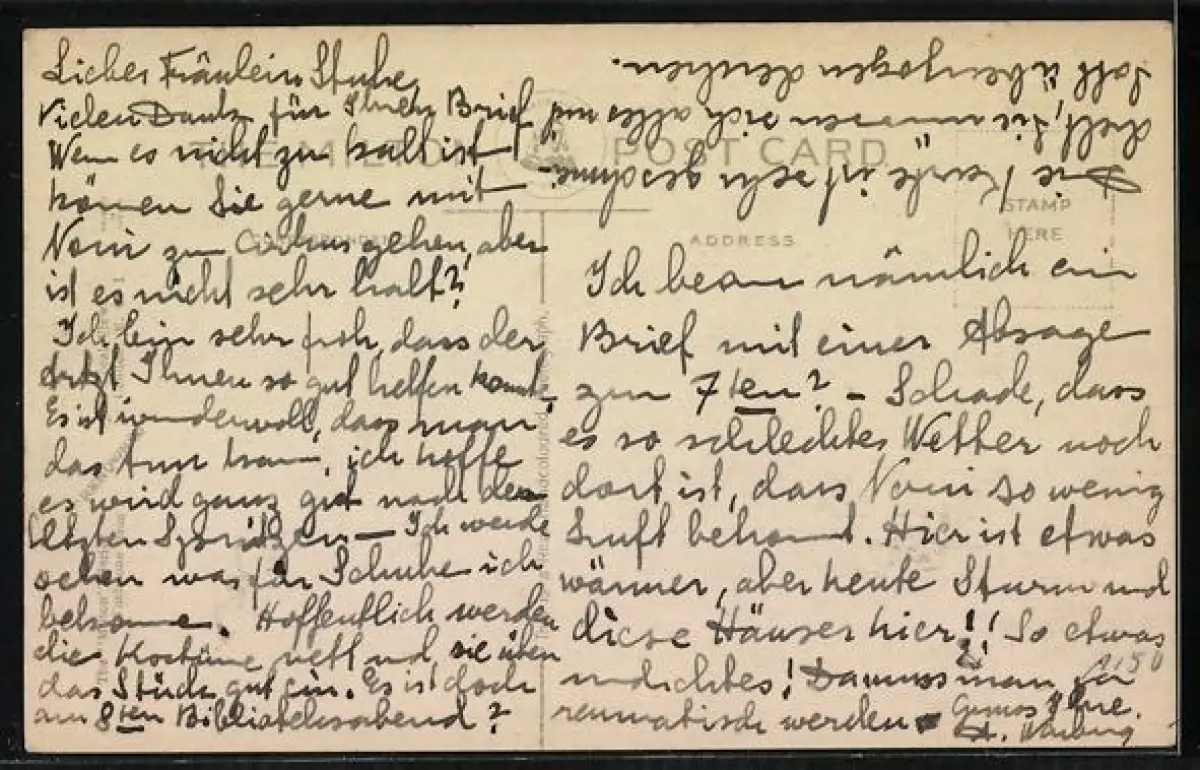 Liebes Fräulein Stube,
Vielen Dank für Ihren Brief
Wenn es nicht zu kalt ist
können Sie gerne mit
Noni zum Cirkus gehen, aber
ist es nicht sehr kalt?
Ich bin sehr froh, dass der
Artzt Ihnen so gut helfen konnte.
Es ist wundervoll, dass man
das tun kann, ich hoffe
es wird ganz gut nach den
letzten Spritzen — Ich werde
sehen was für Schuhe ich
bekomme. Hoffentlich werden
die Kostüme nett und sie üben
das Stück gut ein. Es ist doch
am 8ten Bibliotheksabend?
POST CARD
STAMP
HERE
ADDRESS
Ich bekam nämlich ein
Brief mit einer Absage
zum 7ten? – Schade, dass
es so schlechtes Wetter noch
dort ist, dass Noni so wenig
Luft bekommt. Hier ist etwas
wärmer, aber heute Sturm und
diese Häuser hier!! So etwas
undichtes! Da muss man ja
reumatisch werden
Gruss Ihre
Warburg
Die Karte ist sehr geschmie-
delt, Sie müssen sich alles mit
Saft überzogen denken.